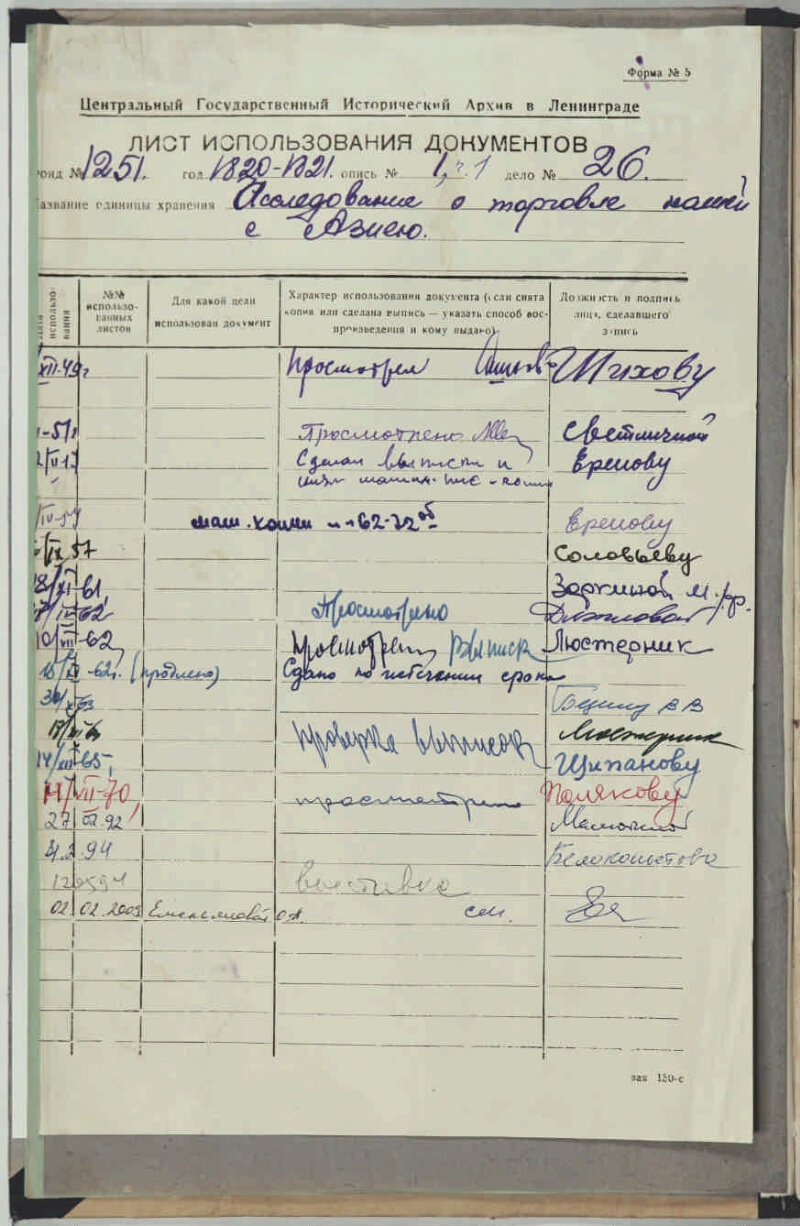 Форма № 5
Центральный Государственный Исторический Архив в Ленинграде
ЛИСТ ИСПОЛЬЗОВАНИЯ ДОКУМЕНТОВ
онд № 1251. год 1820-1821. опись № 1, ч. 1 дело № 26.
азвание единицы хранения Исследование о торговле нашей
с Азиею.
использо-
вания
№№
использо-
ванных
листов
Для какой цели
использован документ
Характер использования документа (если снята
копия или сделана выпись — указать способ вос-
произведения и кому выдано)
Должность и подпись
лица, сделавшего
запись
XII.49г Просмотрел Шихову
-51 Просмотрено Светличной
Сделал выписки и Еремову
маш. копии 62-72об Еремову
IX 57 Соловьеву
18/XI-61, Зоркиной
62 Просмотрено
10/VII-62, Просмотрены Выписк Люстерник
-62г. (продлено) Сдано по истечении срока
В В
проверка выписок Люстерник
14/XII-65, Щипанову
VII-70, просмотрено Полякову
27 92
94 Белокопытова
выставка
02 02.2009 Емельяновой О.А. сем.
зак 150-с